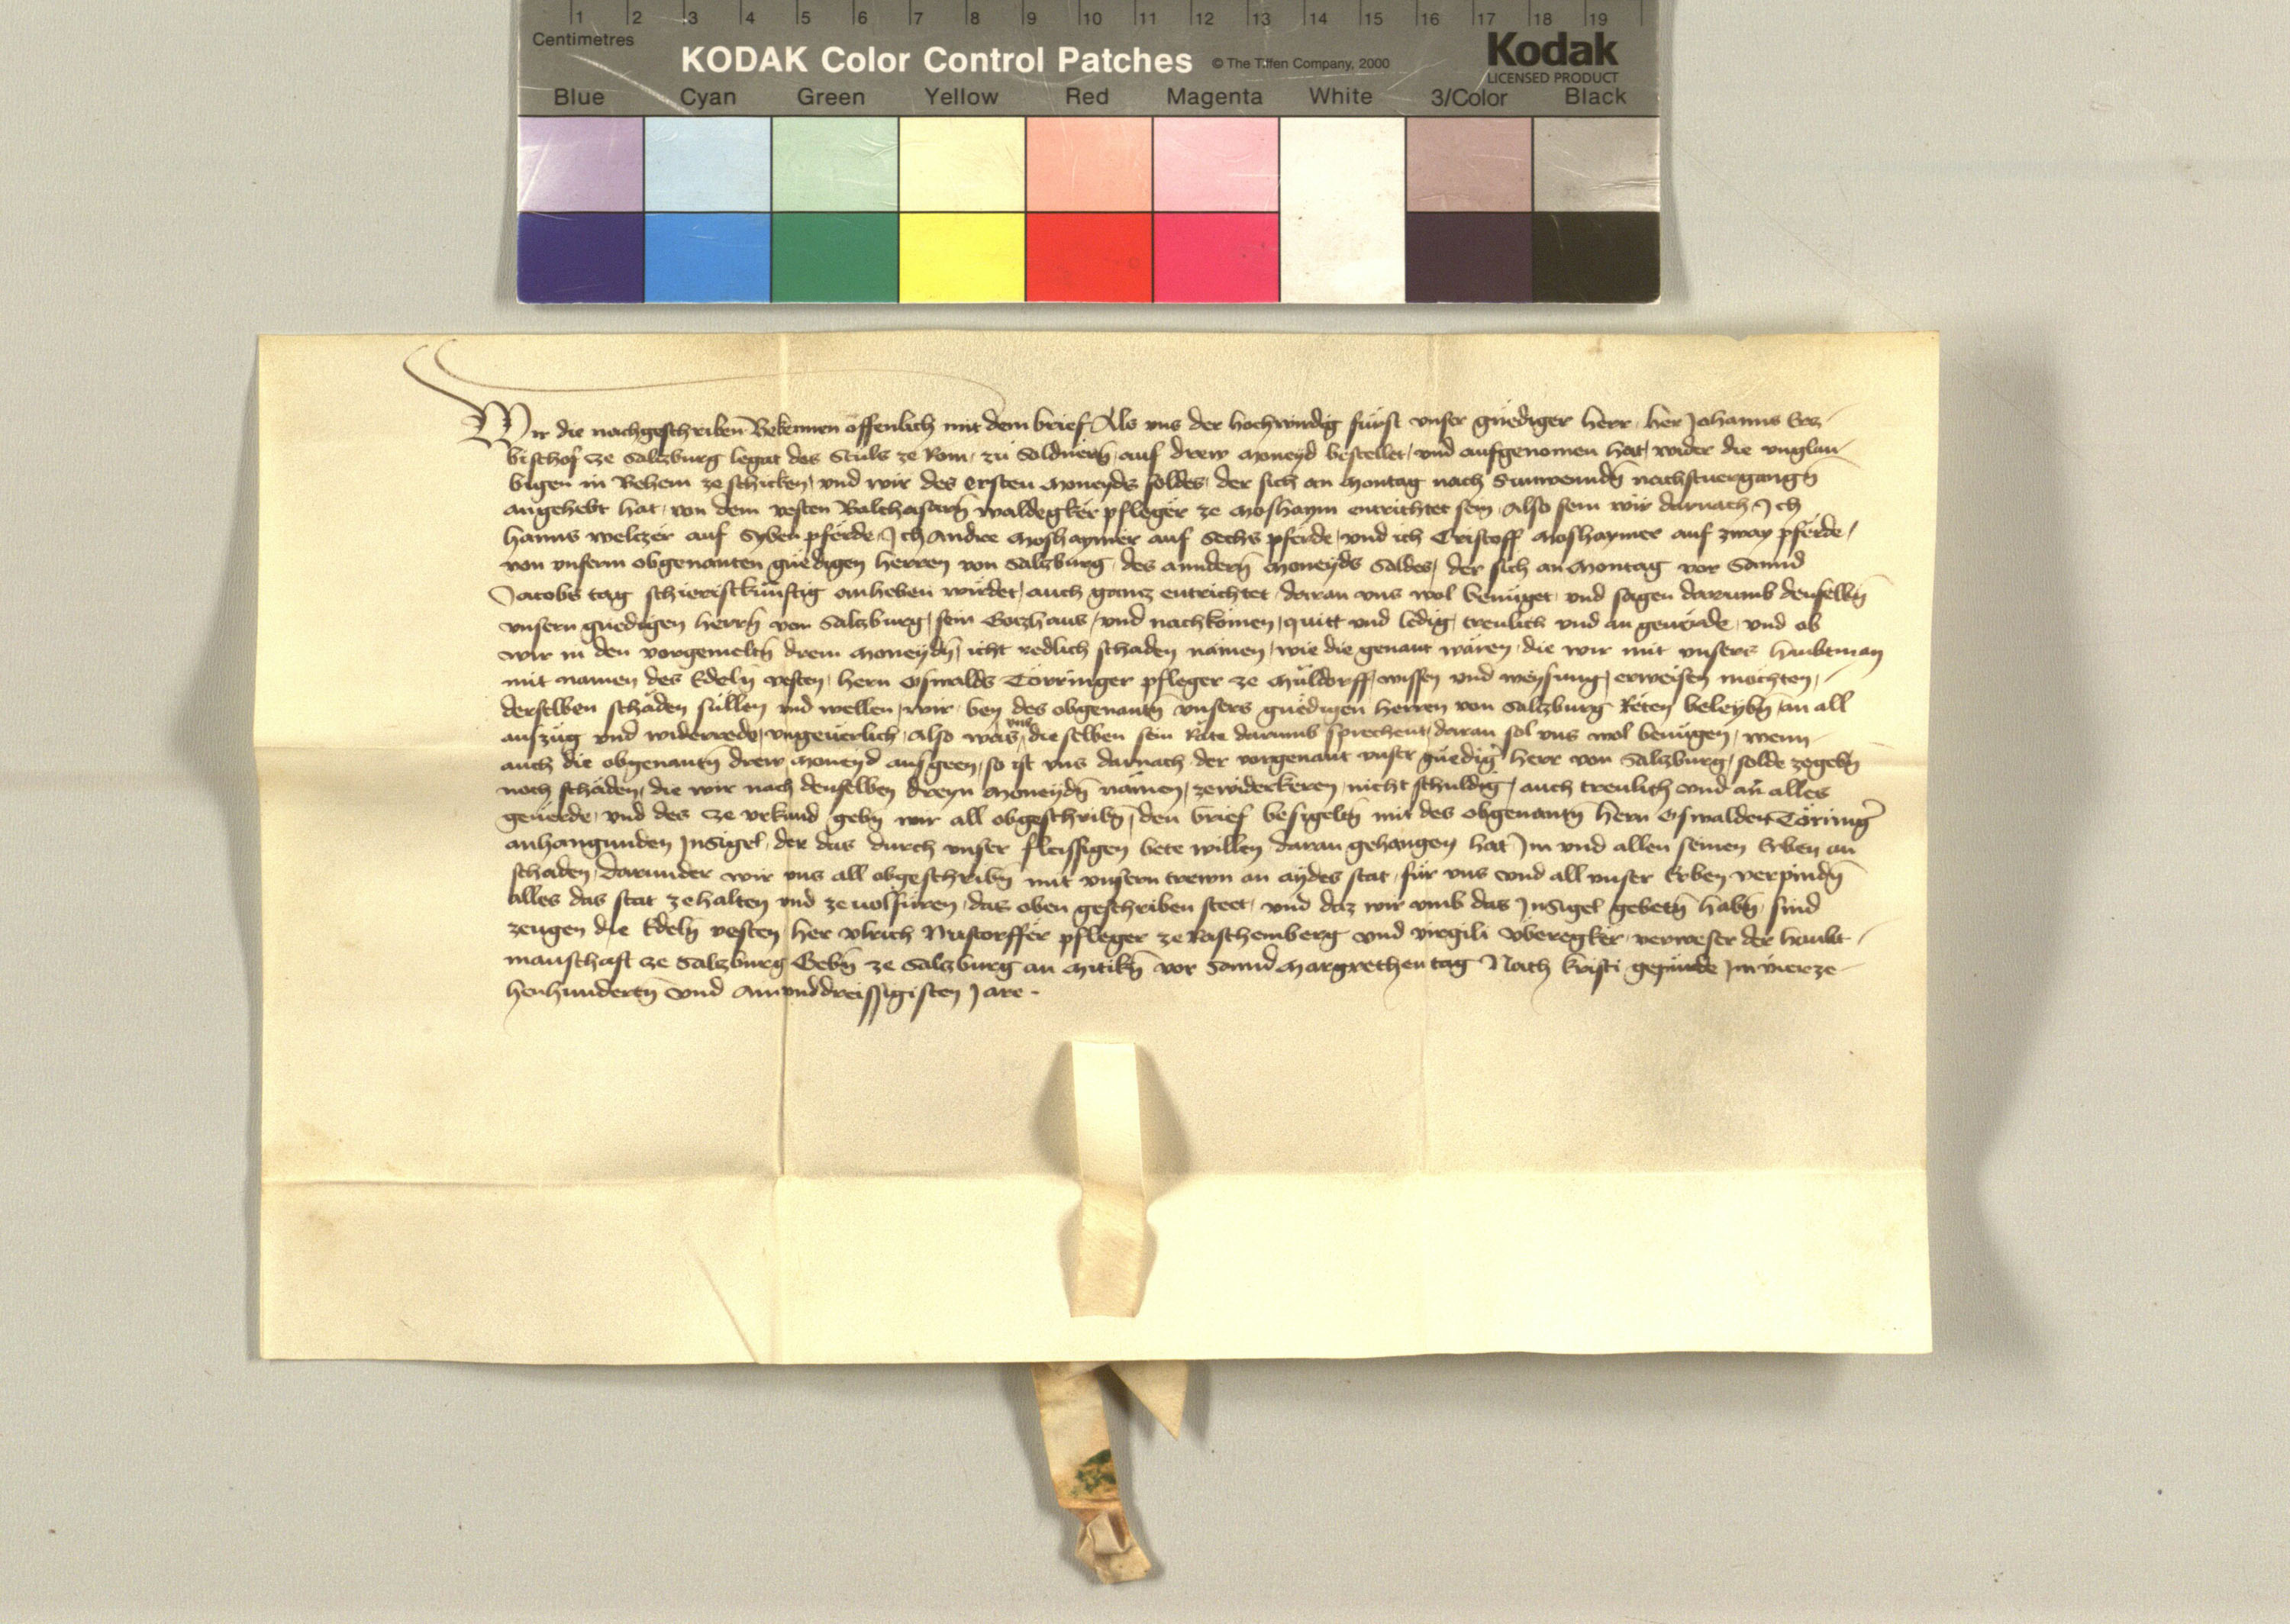 1 2 3 4 5 6 7 8 9 10 11 12 13 14 15 16 17 18 19
Centimetres
KODAK Color Control Patches © The Tiffen Company, 2000 Kodak
LICENSED PRODUCT
Blue Cyan Green Yellow Red Magenta White 3/Color Black
Wir die nachgeschriben Bekennen offenlich mit dem brief Als uns der hochwirdig fürst unser gnediger herr her Johanns Ercz
bischof ze Salczburg legat des Stuls ze Rom zu Soldnern auf drew moneyd bestellet und aufgenomen hat wider die unglau
bigen in Behem ze schicken und wir des ersten moneyds soldes der sich an Montag nach Sunwennden nachstuergangen
angehebt hat von dem vesten Balthasarn waldegker pfleger ze Moshaym entrichtet sein Also sein wir darnach Ich
hanns welczer auf Syben pferde Ich Andre Moshaymer auf Sechs pferde und ich Cristoff Moshaymer auf zway pferde
von unserm obgenanten gnedigen herren von Salczburg des anndern moneyds Soldes der sich an Montag vor Sannd
Jacobs tag schieristkunftig anheben wirdet auch gancz entrichtet daran uns wol benuget und sagen darumb denselben
unsern gnedigen herrn von Salczburg sein Goczhaus und nachkomen quitt und ledig treulich und an geuerde und ob
wir in den vorgemelten drein moneyden icht redlich schaden namen wie die genant waren die wir mit unsers haubtman
mit namen des Edeln vesten hern Oswalds Törringer pfleger ze Müldorff wissen und weysung erweisen mochten
derselben schaden sullen und wellen wir bey des obgenanten unsers gnedigen herren von Salczburg Reten beleyben an all
auszug und widerrede ungeuerlich Also was uns dieselben sein Rate darumb sprechent daran sol uns wol benügen wenn
auch die obgenanten drew moneyd ausgeen so ist uns darnach der vorgenant unser gnediger herr von Salczburg solde zegeben
noch schaden die wir nach denselben dreyn moneyden namen zewiderkeren nicht schuldig auch treulich und an alles
geuerde und des ze urkund geben wir all obgeschriben den brief besigelten mit des obgenanten hern Oswalden Törringer
anhangunden Insigel der das durch unser fleissigen bete willen daran gehangen hat Im und allen seinen Erben an
schaden darunder wir uns all obgeschriben mit unsern trewn an aydes stat für uns und all unser Erben verpinden
alles das stat zehalten und zeuolfüren das oben geschriben steet und daz wir umb das Insigel gebeten haben sind
zeugen die Edeln vesten her Ulrich Nustorffer pfleger ze Raschemberg und virgili Uberegker verweser der haubt
manschaft ze Salczburg Geben ze Salczburg an Mitiken vor Sannd Margrethen tag Nach kristi gepurde Im vierze
henhunderten und Ainunddreissigisten Jare